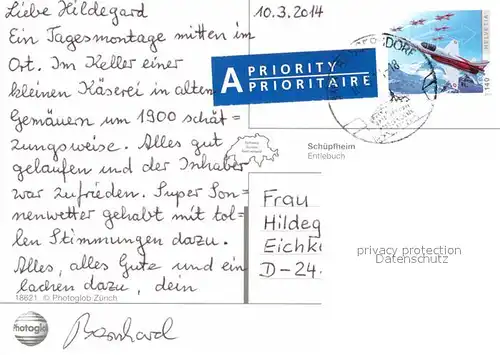 Liebe Hildegard
Ein Tagesmontage mitten im
Ort. Im Keller einer
kleinen Käserei in alten
Gemäuern um 1900 schät-
zungsweise. Alles gut
gelaufen und der Inhaber
war zufrieden. Super Son-
nenwetter gehabt mit tol-
len Stimmungen dazu.
Alles, alles Gute und ein
lachen dazu, dein
Bernhard
18621 © Photoglob Zürich
Photoglob
10.3.2014
A PRIORITY
PRIORITAIRE
HELVETIA
140
Schüpfheim
Entlebuch
Frau
Hildeg
Eichk
D-24.
privacy protection
Datenschutz